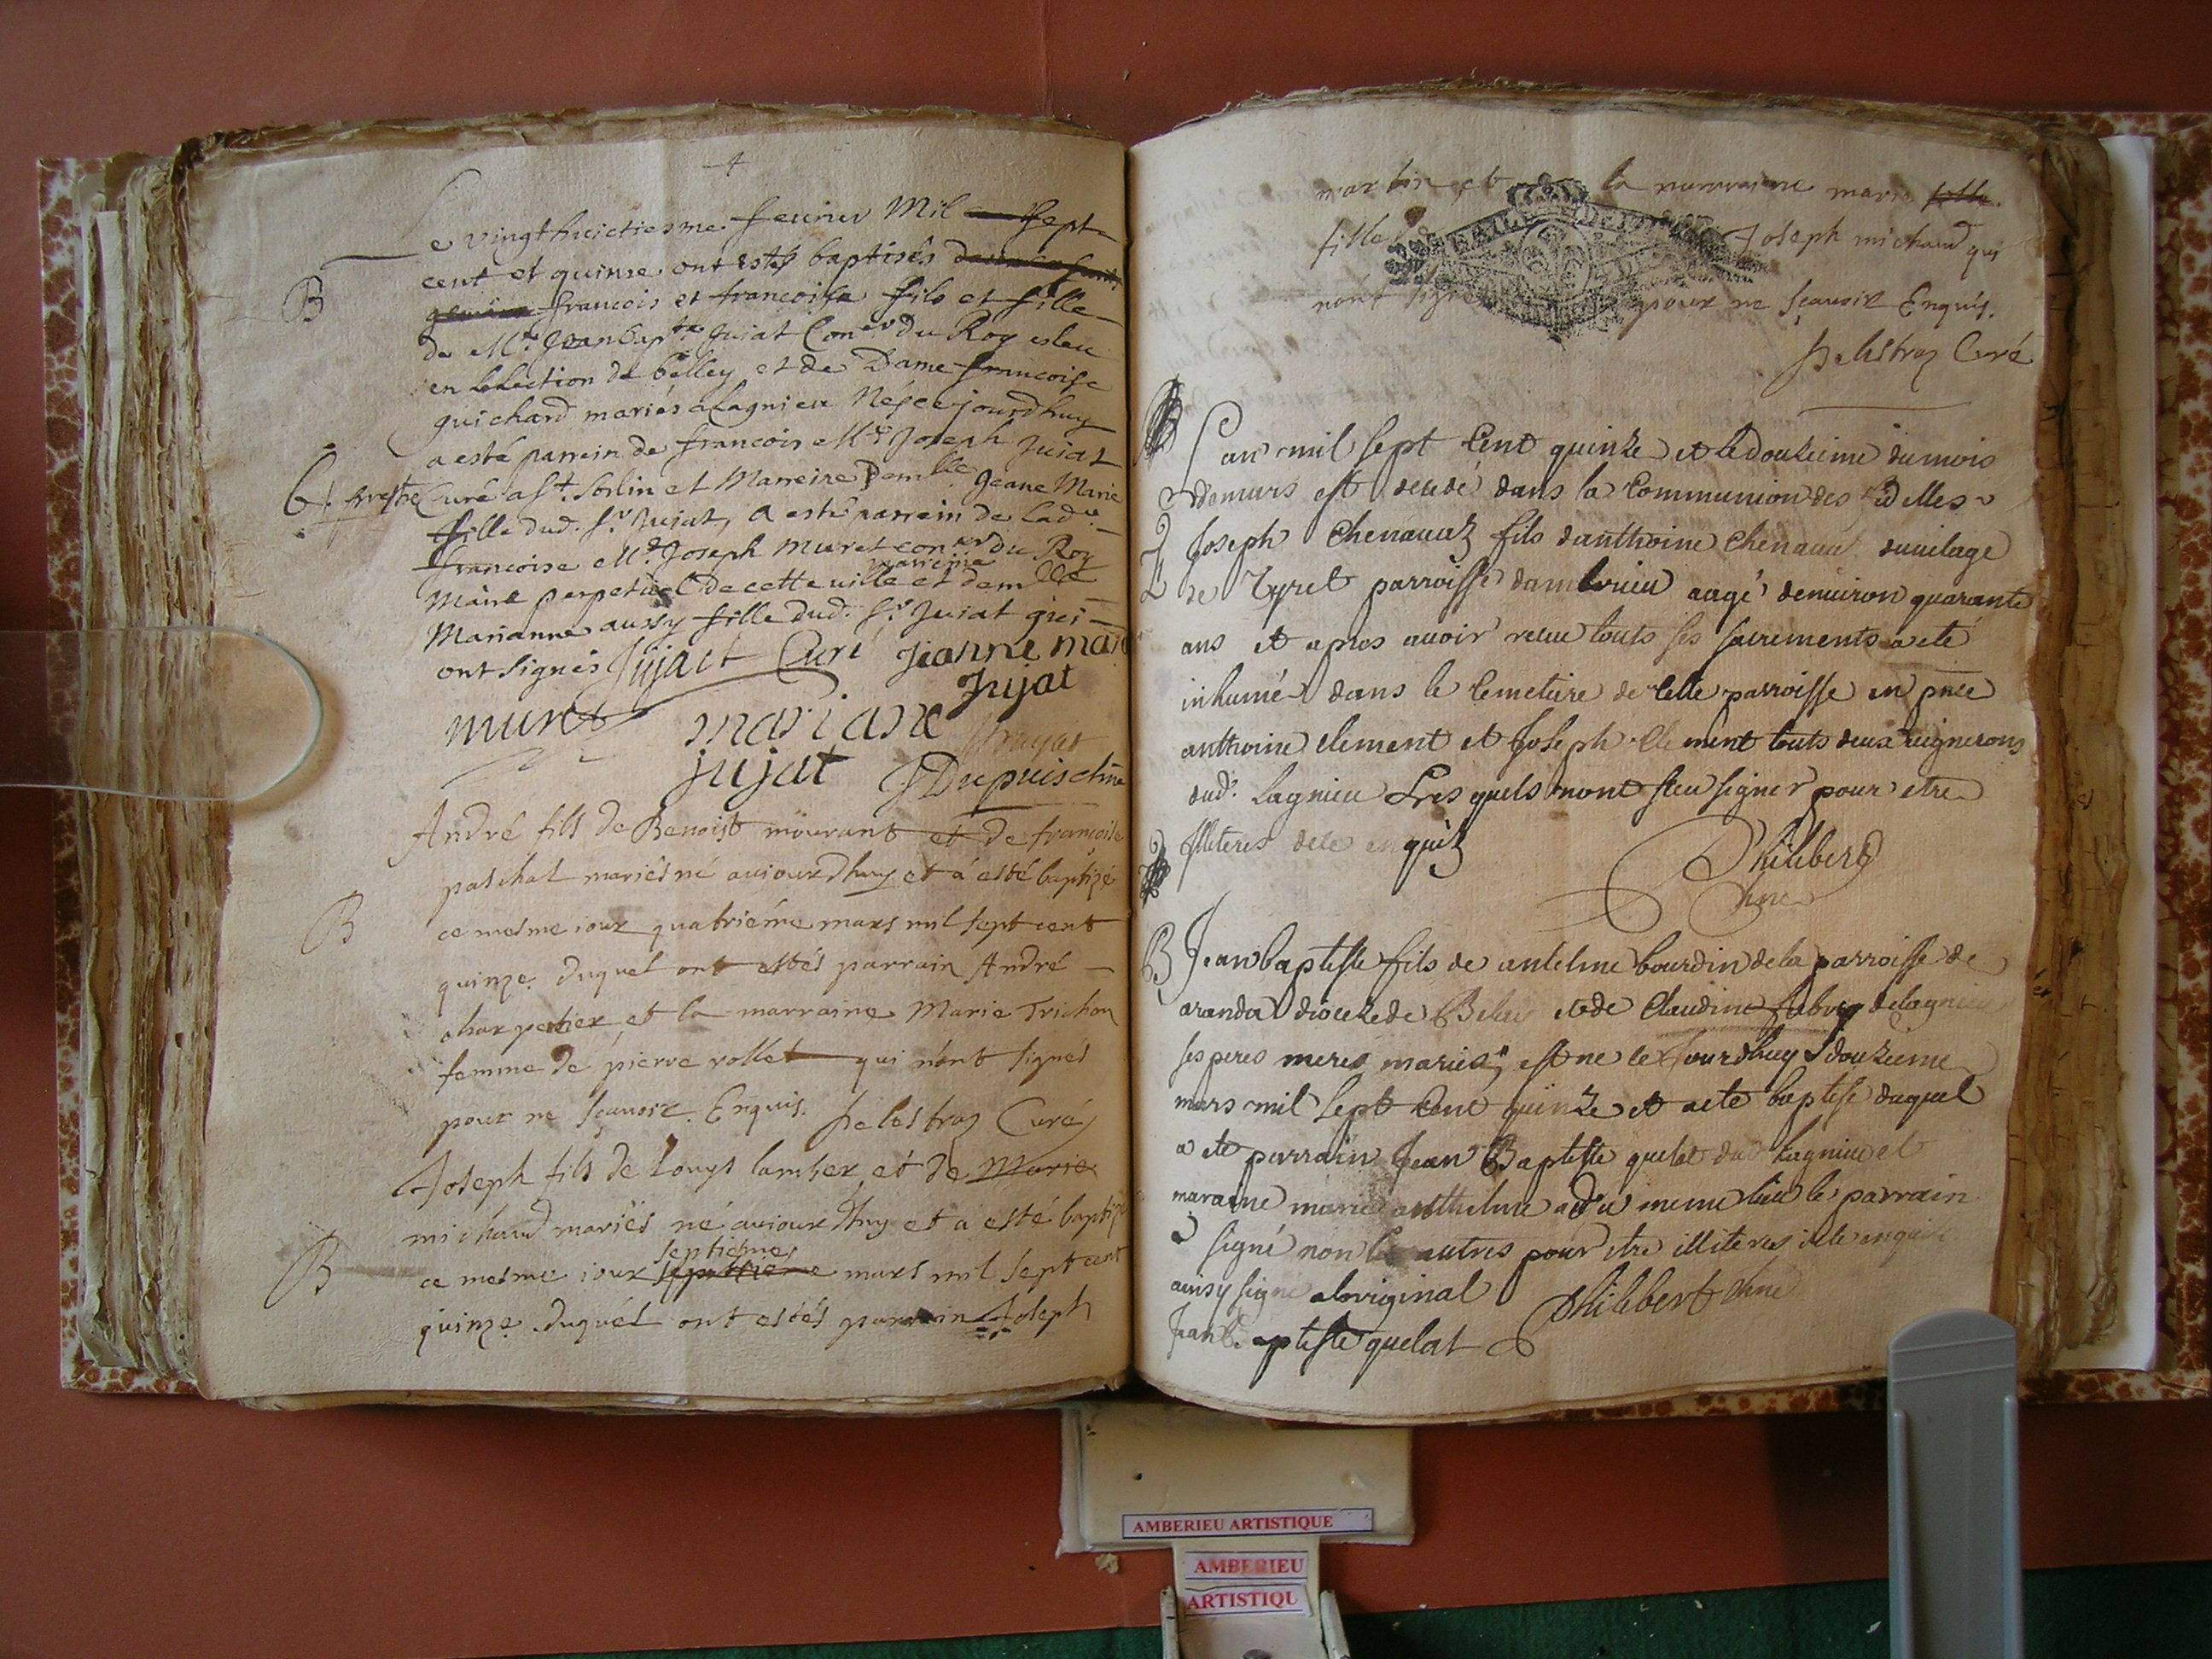 4
Le vingthuictiesme feurier Mil sept
cent et quinse ont estés baptisés
B
francois et francoise fils et fille
de Mr. Jean bapte. Juiat Coner. du Roy esleu
en Lelection de belley et de Dame francoise
guichard mariés a Lagnieu Nés ce jourdhuy
a esté parrein de francois Mre. Joseph Juiat
Curé a St. Sorlin et Marreine Demlle. Jeane Marie
fille dud. Sr. Jujat, a esté parrein de lad.
francoise Mr. Joseph Muret coner du Roy
Maire perpetuel de cette uille et marreine demlle
Marianne aussy fille dud. Sr. Juiat qui
ont signés Jujact Curé Jeanne marie
Jujat
muret mariane
jujat JDupuis chne
André fils de Benoist mourant et de françoise
paschal mariés né auiourdhuy et á esté baptizé
B
ce mesme iour quatriéme mars mil sept cent
quinze. duquel ont estés parrain André
charpentier et la marraine Marie Trichon
femme de pierre rollet qui nont signés
pour ne sçauoir. Enquis. Delestraz Curé
Joseph fils de Louys lamber et de Marie
michaud mariés né auiourdhuy et a esté baptizé
B
septiéme
ce mesme iour mars mil sept cent
quinze duquel ont estés parrain Joseph
martin et la marraine marie
fille Joseph michaud qui
nont signé pour ne sçauoir Enquis.
Delestraz Curé
Lan mil sept Cent quinze et le douzeime du mois
de mars est decedé dans la Communion des fidelles
Joseph Chenauaz fils danthoine Chenauaz du uilage
de Tyret parroisse dambrieu aagé denuiron quarante
ans et apres auoir receu touts ses sacrements a eté
inhumé dans le Cemetiere de Cette parroisse en pnce
anthoine Clement et Joseph Clement touts deux uignerons
dud. Lagnieu Lesquels nont sceu signer pour etre
Illiteres de ce enquis
Philibert
chne
B
Jean baptiste fils de antelme bourdin de la parroisse de
aranda dioceze de Beley et de Claudine
ses peres meres mariés, est ne ce Jourdhuy douzeime
mars mil sept Cent quinze et a eté baptise duquel
a eté parrain Jean Baptiste quelat dud. Lagnieu et
maraine marie anthelme du meme lieu le parrain
a signé non les autres pour etre illiteres de ce enquis
ainsy signé a loriginal Philibert chne
Jean baptiste quelat
AMBERIEU ARTISTIQUE
AMBERIEU
ARTISTIQU